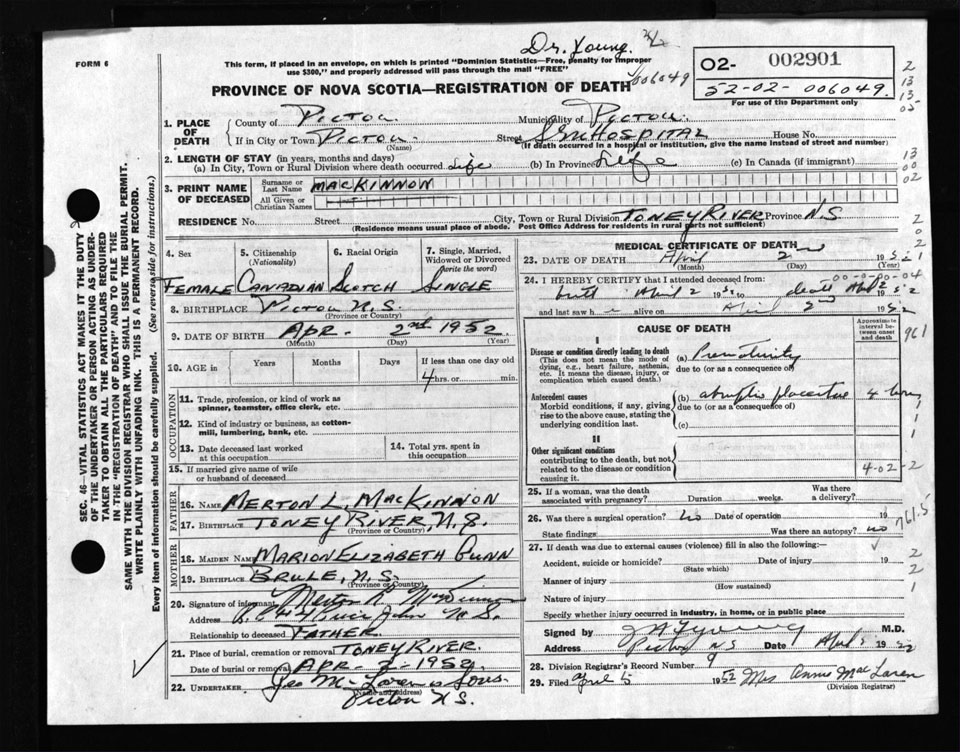 Dr. Young.
FORM 6
This form, if placed in an envelope, on which is printed "Dominion Statistics—Free, penalty for improper
use $300," and properly addressed will pass through the mail "FREE"
006049
02- 002901
52-02- 006049.
For use of the Department only
PROVINCE OF NOVA SCOTIA—REGISTRATION OF DEATH
2
13
13
05
1. PLACE OF DEATH
County of PICTOU. Municipality of PICTOU.
If in City or Town PICTOU. Street HOSPITAL House No.
(Name) (If death occurred in a hospital or institution, give the name instead of street and number)
2. LENGTH OF STAY (in years, months and days)
(a) In City, Town or Rural Division where death occurred Life (b) In Province Life (c) In Canada (if immigrant)
13
00
02
3. PRINT NAME OF DECEASED
Surname or Last Name MACKINNON
All Given or Christian Names
RESIDENCE No. Street City, Town or Rural Division TONEY RIVER Province N.S
(Residence means usual place of abode. Post Office Address for residents in rural parts not sufficient)
4. Sex 5. Citizenship (Nationality) 6. Racial Origin 7. Single, Married, Widowed or Divorced (write the word)
FEMALE CANADIAN SCOTCH SINGLE
8. BIRTHPLACE PICTOU N.S.
(Province or Country)
9. DATE OF BIRTH APR- 2nd 1952
(Month) (Day) (Year)
10. AGE in Years Months Days If less than one day old
4 hrs. or min.
OCCUPATION
11. Trade, profession, or kind of work as
spinner, teamster, office clerk, etc.
12. Kind of industry or business, as cotton-
mill, lumbering, bank, etc.
13. Date deceased last worked
at this occupation
14. Total yrs. spent in
this occupation
15. If married give name of wife
or husband of deceased
FATHER
16. NAME MERTON L. MACKINNON
17. BIRTHPLACE TONEY RIVER, N.S.
(Province or Country)
MOTHER
18. MAIDEN NAME MARION ELIZABETH GUNN
19. BIRTHPLACE BRULE, N.S.
(Province or Country)
20. Signature of informant
Address River John N.S.
Relationship to deceased FATHER
21. Place of burial, cremation or removal TONEY RIVER.
Date of burial or removal APR-
22. UNDERTAKER Geo McLaren & Sons.
(Name and address)
Pictou N.S.
MEDICAL CERTIFICATE OF DEATH
23. DATE OF DEATH April 2 1952
(Month) (Day) (Year)
00-00-00-04
24. I HEREBY CERTIFY that I attended deceased from:
birth April 2 1952 to death April 2 1952
and last saw h alive on April 2nd 1952
CAUSE OF DEATH
Approximate interval between onset and death
961
I
Disease or condition directly leading to death
(This does not mean the mode of
dying, e.g., heart failure, asthenia,
etc. It means the disease, injury, or
complication which caused death.)
(a) Prematurity
due to (or as a consequence of)
Antecedent causes
Morbid conditions, if any, giving
rise to the above cause, stating the
underlying condition last.
(b) abruptio placentae 4 hrs
due to (or as a consequence of)
(c)
II
Other significant conditions
contributing to the death, but not
related to the disease or condition
causing it.
4-02-2
25. If a woman, was the death
associated with pregnancy? Duration weeks. Was there
a delivery?
26. Was there a surgical operation? no Date of operation 19
State findings Was there an autopsy? no
761.5
27. If death was due to external causes (violence) fill in also the following:—
Accident, suicide or homicide? Date of injury 19
(State which)
Manner of injury
(How sustained)
Nature of injury
Specify whether injury occurred in industry, in home, or in public place
Signed by J A F Young M.D.
Address Pictou N S Date April 5 1952
28. Division Registrar's Record Number 9
29. Filed April 5 1952 Mrs Annie MacLaren
(Division Registrar)
SEC. 46—VITAL STATISTICS ACT MAKES IT THE DUTY
OF THE UNDERTAKER OR PERSON ACTING AS UNDER-
TAKER TO OBTAIN ALL THE PARTICULARS REQUIRED
IN THE "REGISTRATION OF DEATH" AND TO FILE THE
SAME WITH THE DIVISION REGISTRAR WHO SHALL ISSUE THE BURIAL PERMIT.
WRITE PLAINLY WITH UNFADING INK. THIS IS A PERMANENT RECORD.
Every item of information should be carefully supplied. (See reverse side for instructions.)